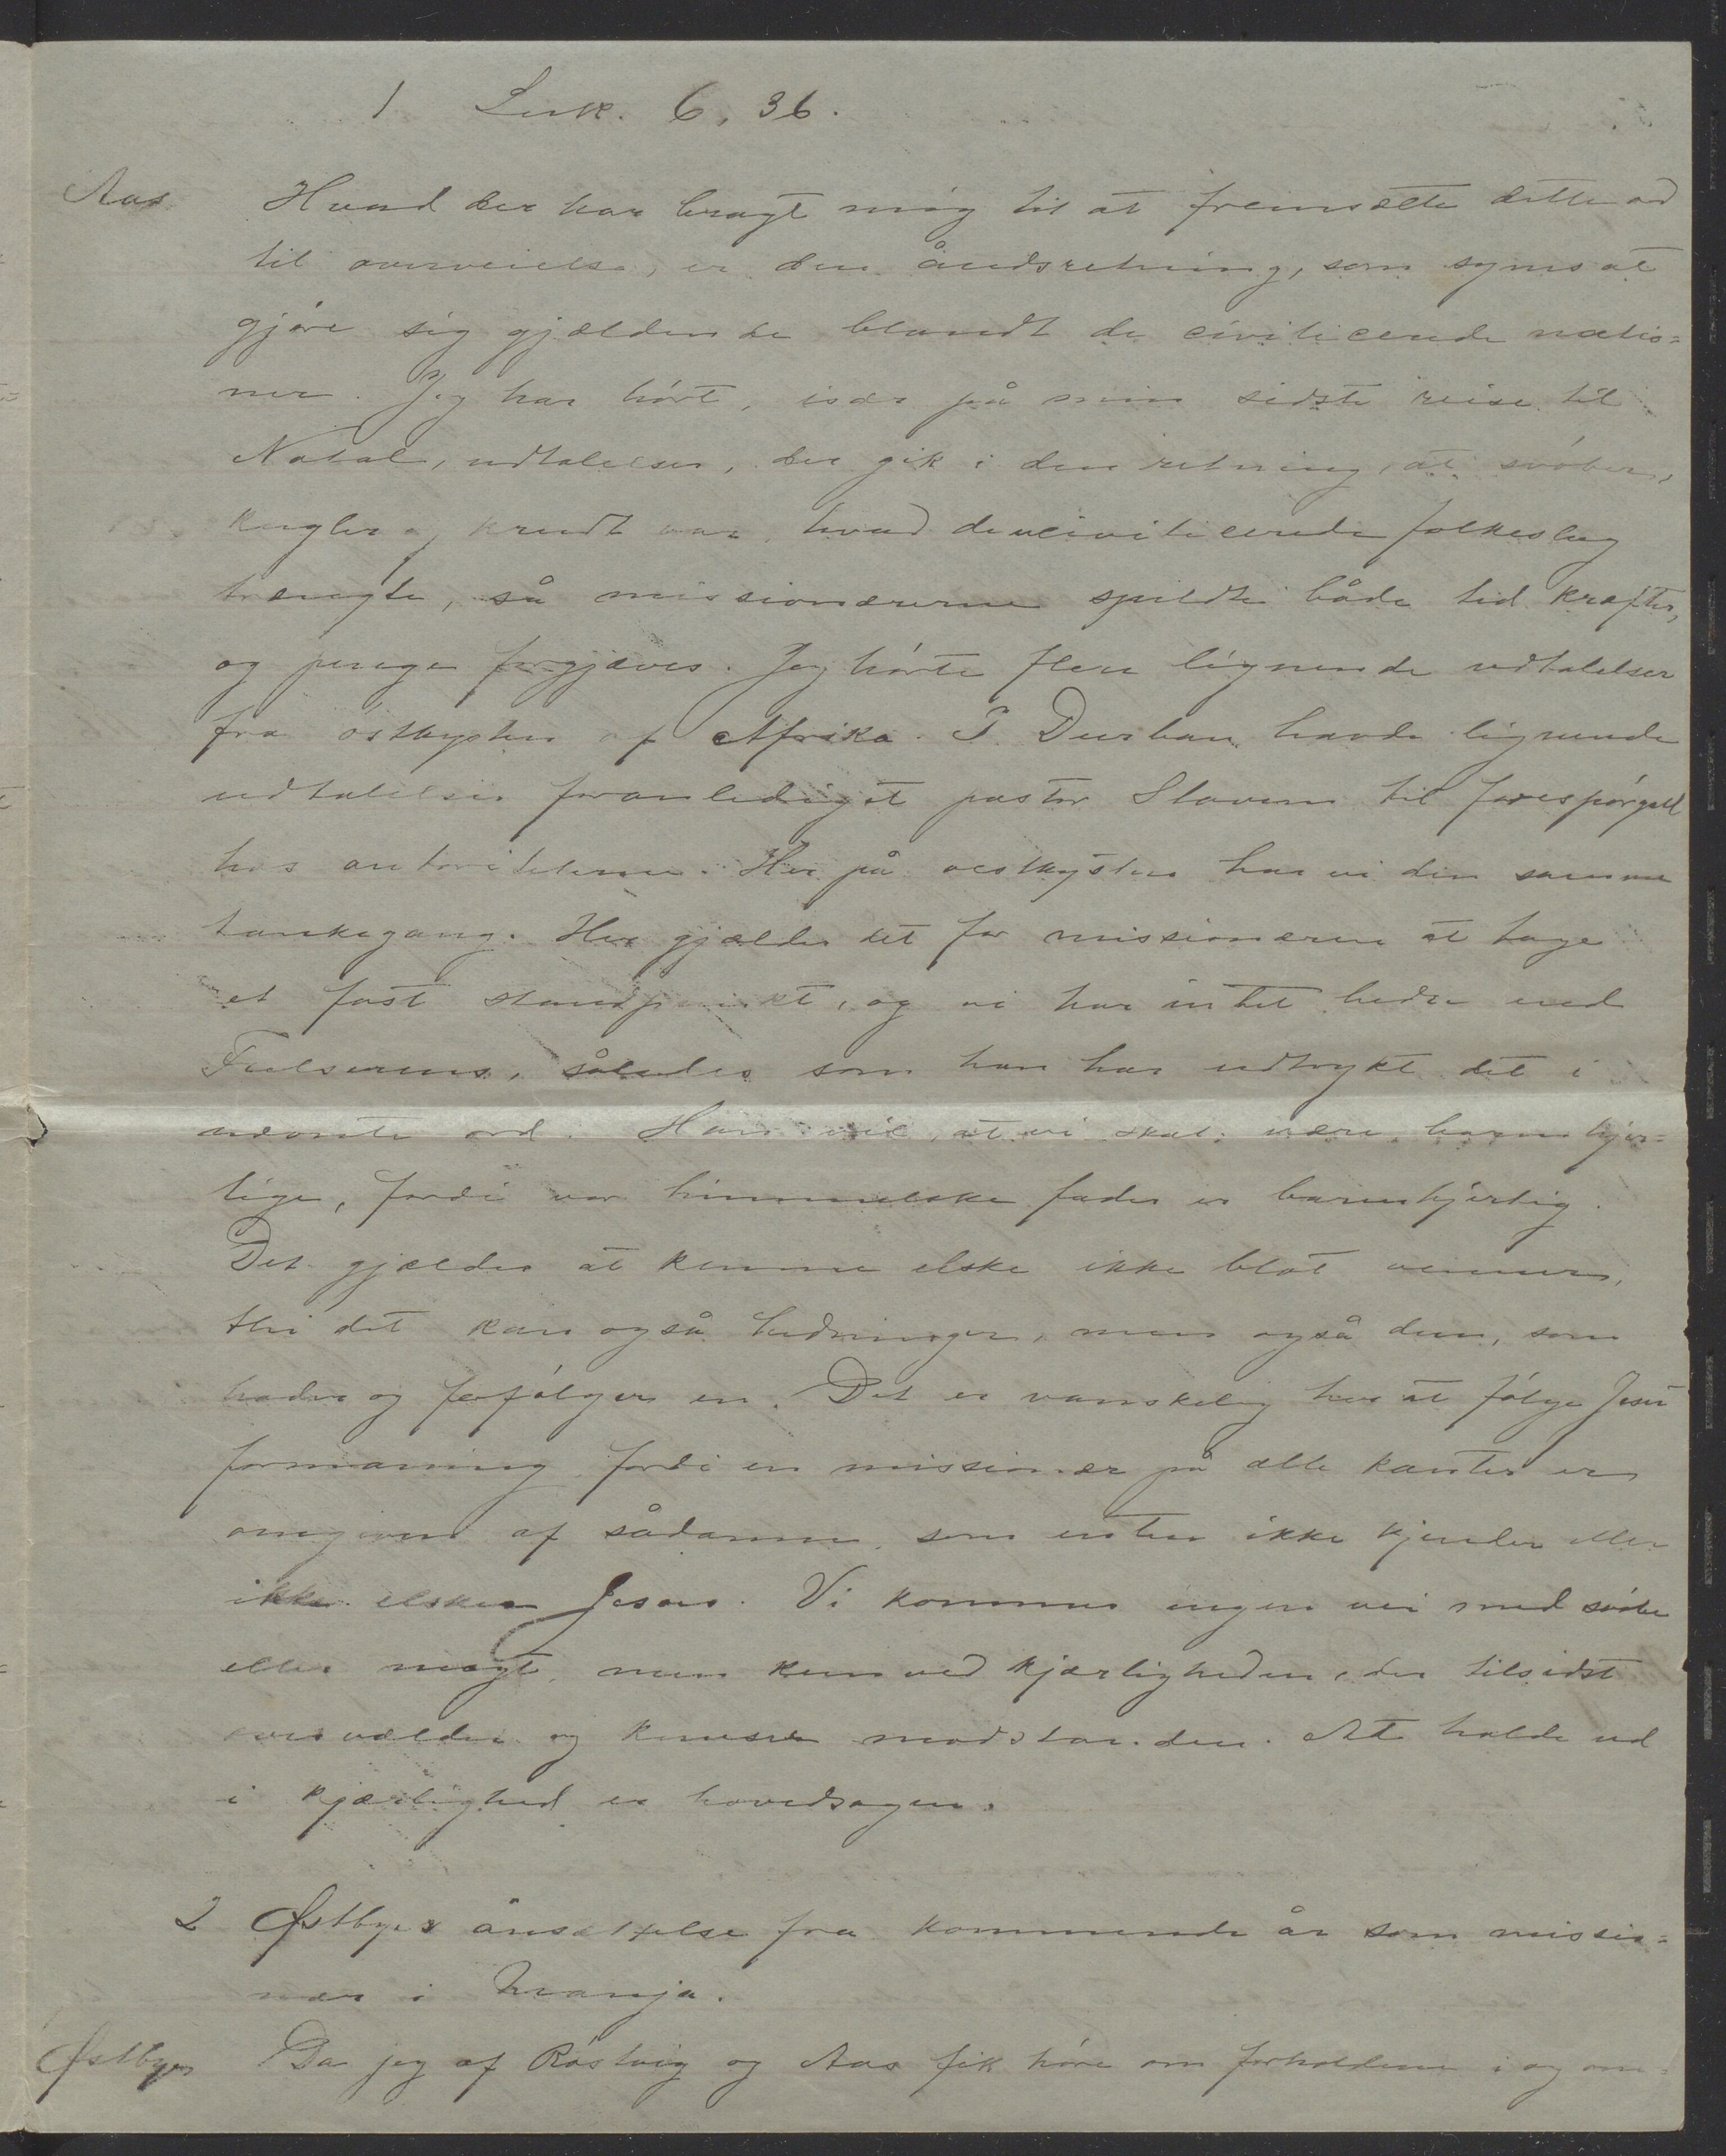 1 Luk. 6, 36.
Aas Hvad der har bragt mig til at fremsætte dette ord
til overveielse, er den åndsretning, som synes at
gjøre sig gjældende blandt de civilicerede natio=
ner. Jeg har hørt, især på min sidste reise til
Natal, udtalelser, der gik i den retning, at svøber,
kugler og krudt var, hvad de ucivilicerede folkeslag
trængte, så missionærerne spildte både tid kræfter,
og penge forgjæves. Jeg hørte flere lignende udtalelser
fra østkysten af Afrika. I Durban havde lignende
udtalelser foranlediget pastor Stavem til forespørgsel
hos autoriteterne. Her på vestkysten har vi den samme
tankegang. Her gjælder det for missionæren at tage
et fast standpunkt, og vi har intet bedre end
Frelserens, således som han har udtrykt det i
nævnte ord. Han vil, at vi skal være barmhjer=
tige, fordi vor himmelske fader er barmhjertig.
Det gjælder at kunne elske ikke blot venner,
thi det kan også hedninger, men også dem, som
hader og forfølger en. Det er vanskelig her at følge Jesu
formaning, fordi en missionær på alle kanter er
omgiven af sådanne, som enten ikke kjender eller
ikke elsker Jesus. Vi kommer ingen vei med svøbe
eller magt, men kun ved kjærligheden, der tilsidst
overvælder og knuser modstanden. At holde ud
i kjærlighed er hovedsagen.
2 Østbyes ansættelse fra kommende år som missio=
nær i Manja.
Østbye Da jeg af Røstvig og Aas fik høre om forholdene i og om=